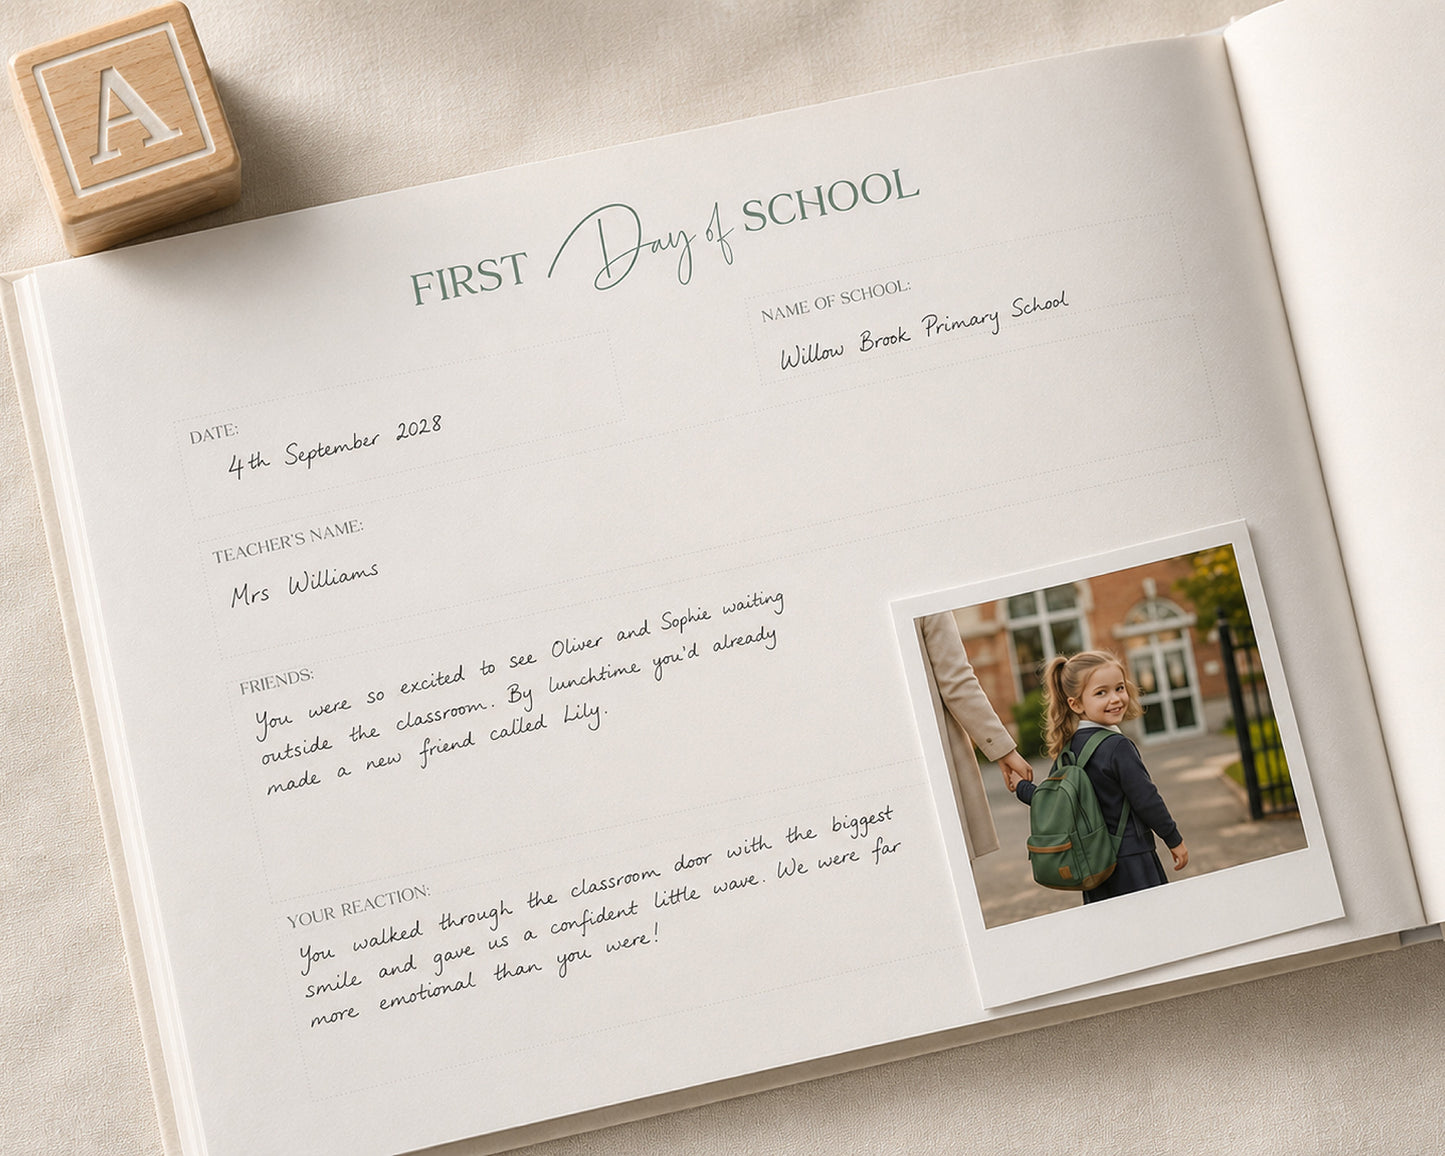 A
FIRST Day of SCHOOL
NAME OF SCHOOL:
Willow Brook Primary School
DATE:
4th September 2028
TEACHER'S NAME:
Mrs Williams
FRIENDS:
You were so excited to see Oliver and Sophie waiting
outside the classroom. By lunchtime you'd already
made a new friend called Lily.
YOUR REACTION:
You walked through the classroom door with the biggest
smile and gave us a confident little wave. We were far
more emotional than you were!